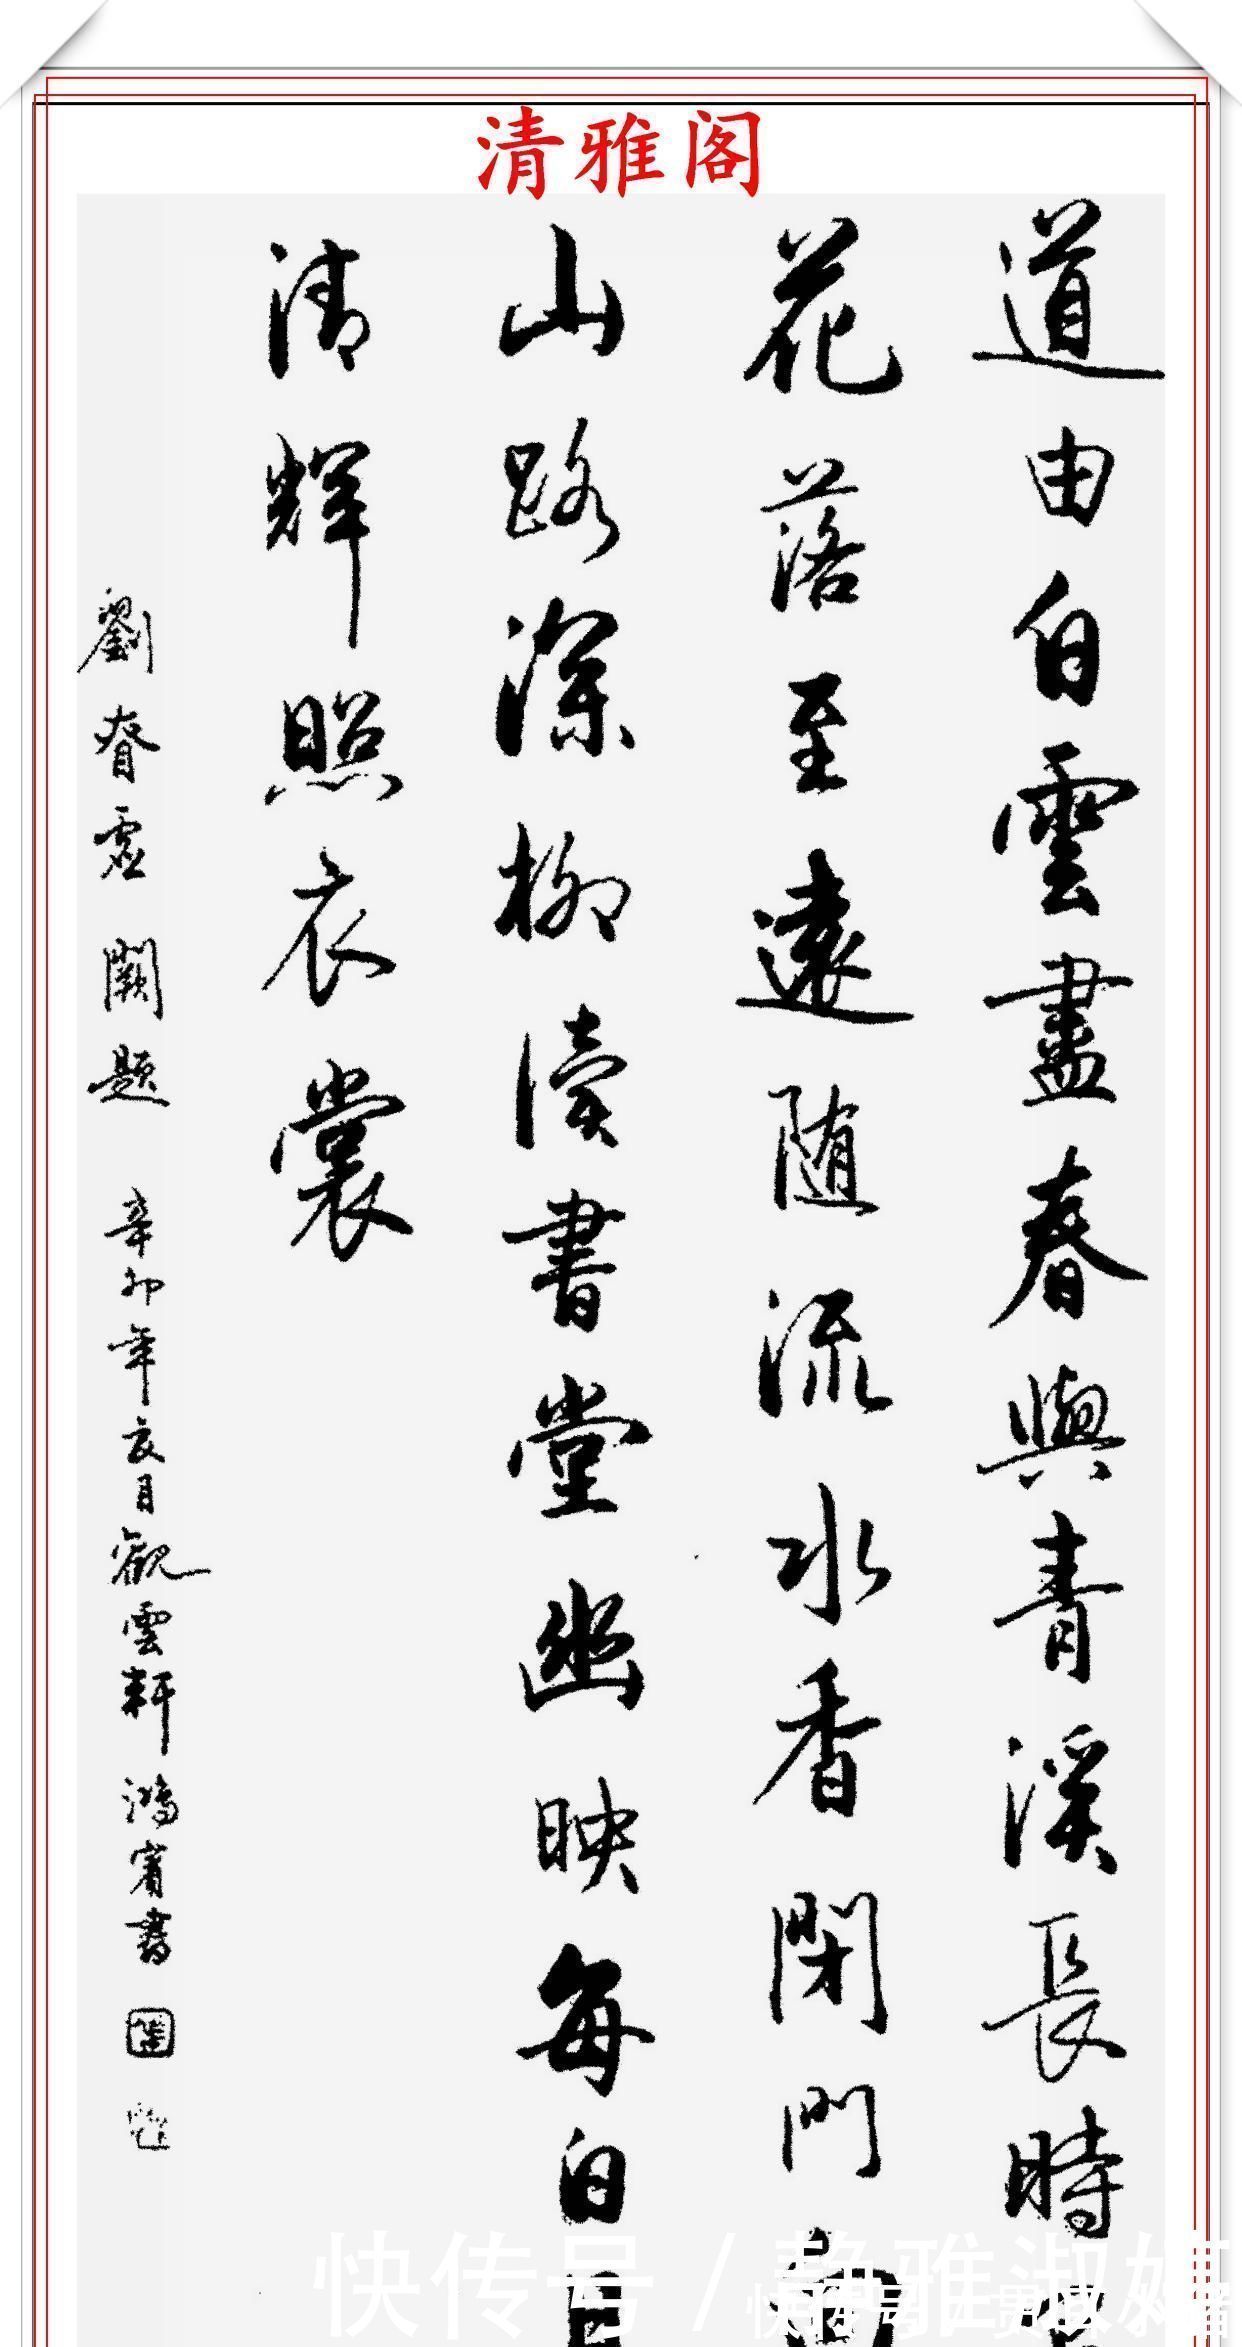 清雅阁
道由白雲盡春與青溪長時
花落至遠随流水香閑門向
山路深柳讀書堂幽映每白日
清輝照衣裳
劉眘虚 闕題 辛卯年亥月觀雲軒鴻賓書
快传号 / 静雅淑媛